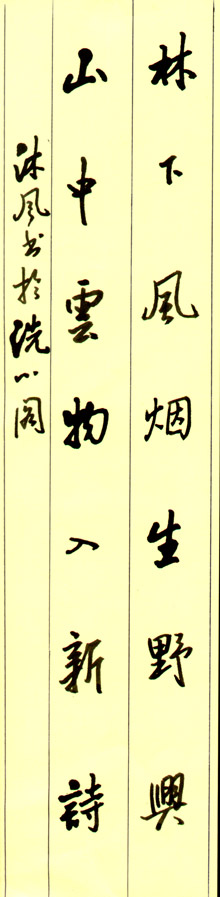 林下風烟生野興
山中雲物入新詩
沐風书於洗心阁